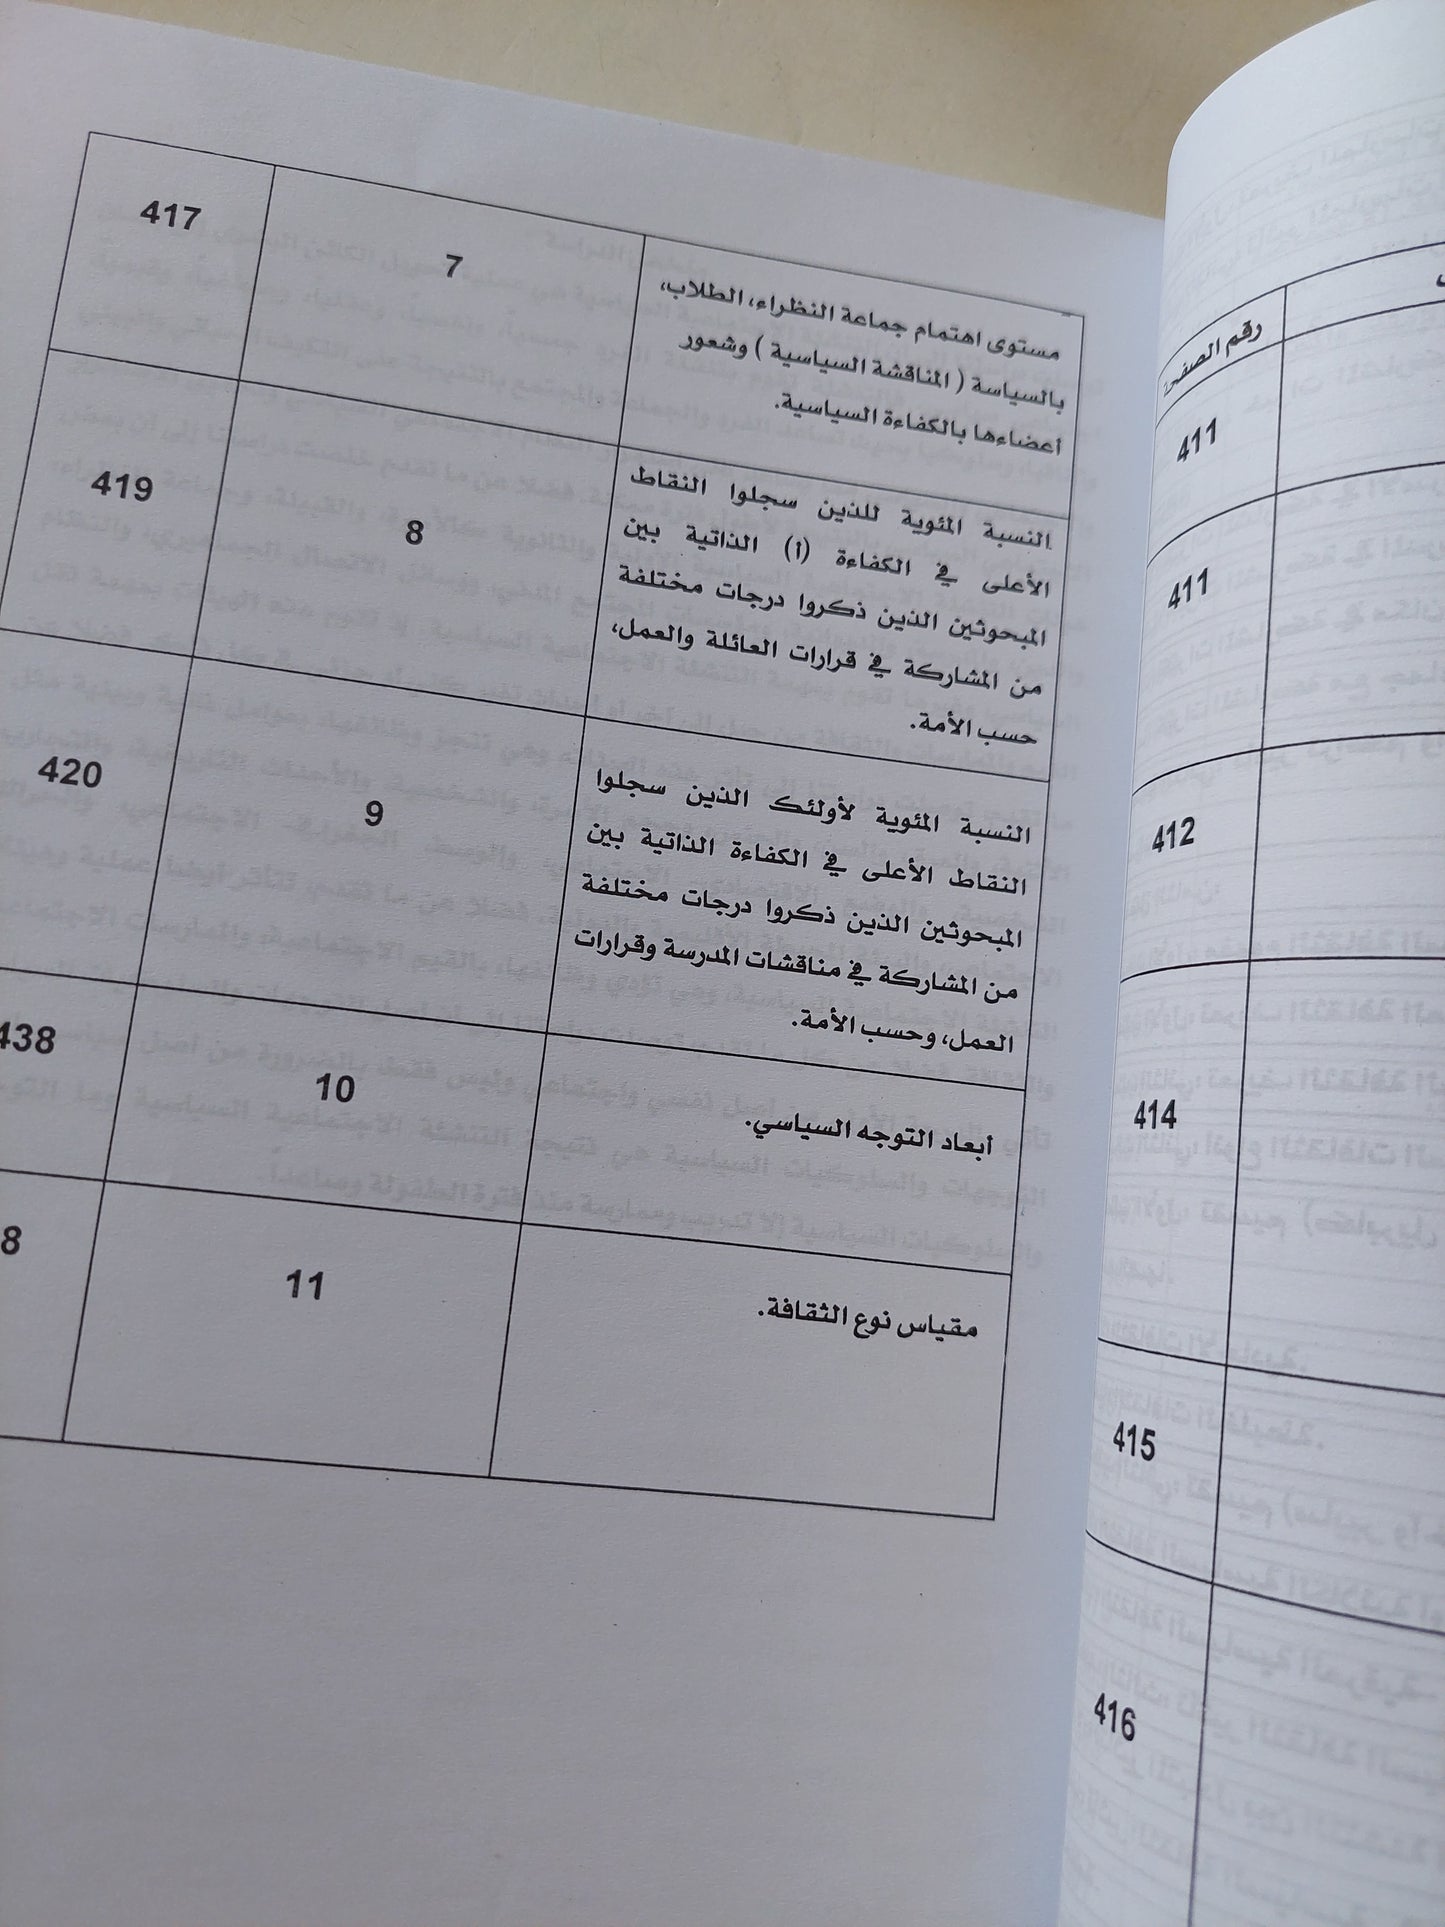 رقم الصفحة
411
411
412
414
415
416
مستوى اهتمام جماعة النظراء، الطلاب،
بالسياسة ( المناقشة السياسية ) وشعور
أعضاءها بالكفاءة السياسية.
7
417
النسبة المئوية للذين سجلوا النقاط
الأعلى في الكفاءة (أ) الذاتية بين
المبحوثين الذين ذكروا درجات مختلفة
من المشاركة في قرارات العائلة والعمل،
حسب الأمة.
8
419
النسبة المئوية لأولئك الذين سجلوا
النقاط الأعلى في الكفاءة الذاتية بين
المبحوثين الذين ذكروا درجات مختلفة
من المشاركة في مناقشات المدرسة وقرارات
العمل، وحسب الأمة.
9
420
أبعاد التوجه السياسي.
10
438
مقياس نوع الثقافة.
11
8